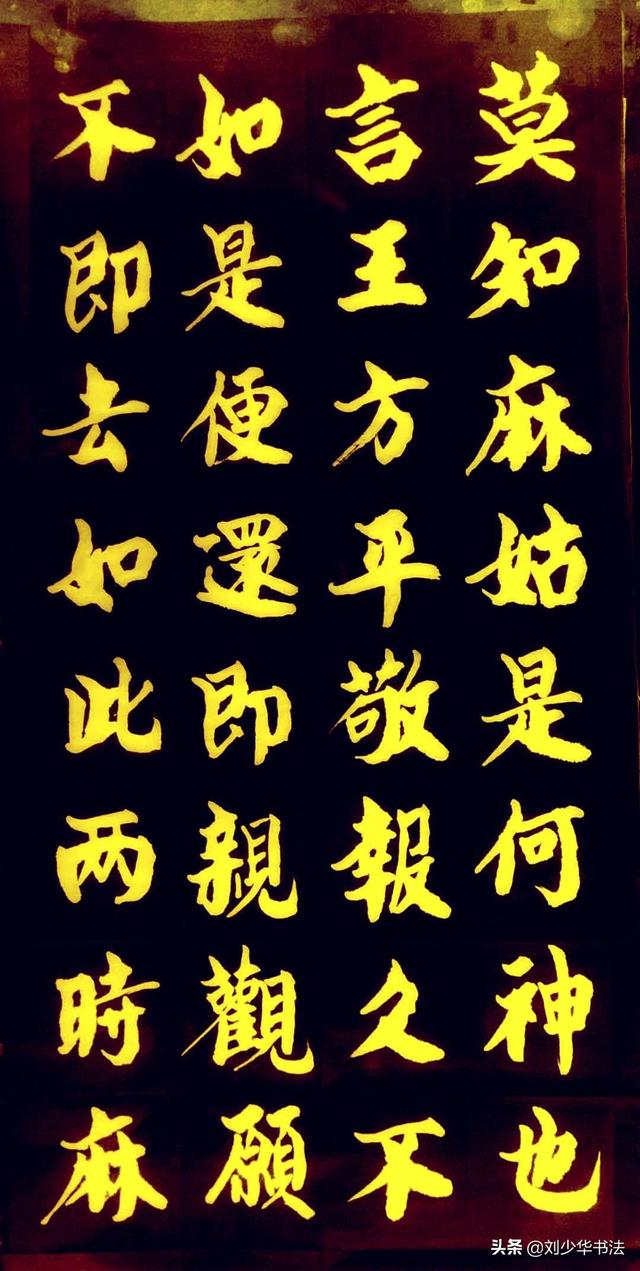 莫知麻姑是何神也
言王方平敬報久不
如是便還即親觀願
不即去如此两時麻
头条 @刘少华书法